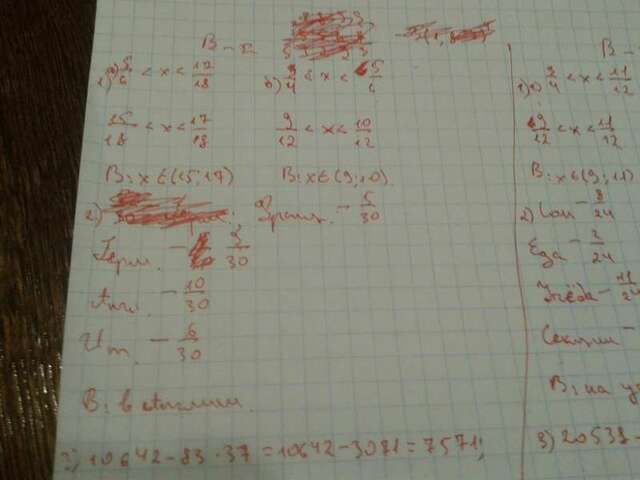 В-I
1) а) 5/6 < x < 17/18 б) 3/4 < x < 5/6
15/18 < x < 17/18 9/12 < x < 10/12
В: x ∈ (15; 17) В: x ∈ (9; 10)
2) Франц. – 5/30
Герм. – 9/30
Англ. – 10/30
Ит. – 6/30
В: в Англии.
3) 10642 – 83 · 37 = 10642 – 3071 = 7571;
В –
1) а) 3/4 < x < 11/12
9/12 < x < 11/12
В: x ∈ (9; 11)
2) Сон – 8/24
Еда – 2/24
Учёба – 11/24
Секции –
В: на
3) 20538 –